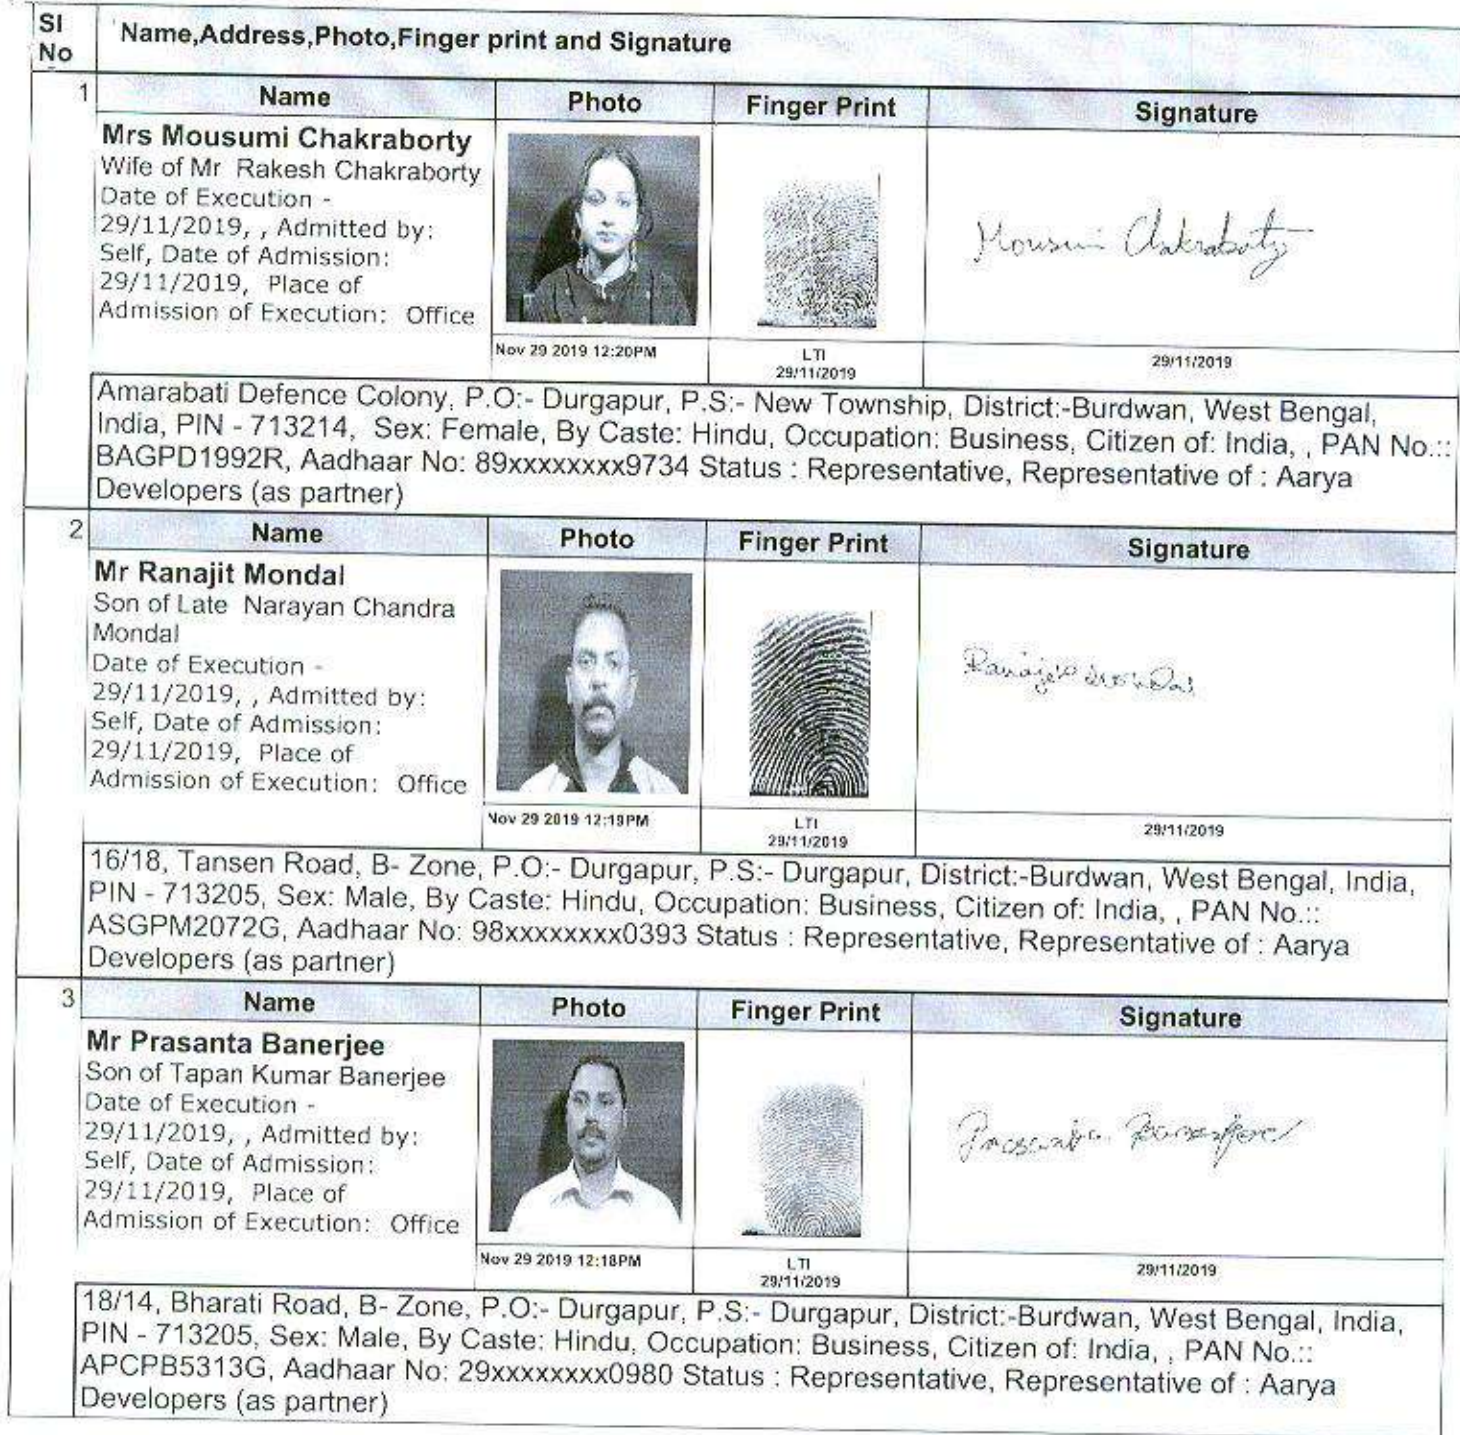 Sl No
Name,Address,Photo,Finger print and Signature
1
Name Photo Finger Print Signature
Mrs Mousumi Chakraborty
Wife of Mr Rakesh Chakraborty
Date of Execution -
29/11/2019, , Admitted by:
Self, Date of Admission:
29/11/2019, Place of
Admission of Execution: Office
Mousumi Chakraborty
Nov 29 2019 12:20PM
LTI
29/11/2019
29/11/2019
Amarabati Defence Colony, P.O:- Durgapur, P.S:- New Township, District:-Burdwan, West Bengal,
India, PIN - 713214, Sex: Female, By Caste: Hindu, Occupation: Business, Citizen of: India, , PAN No.::
BAGPD1992R, Aadhaar No: 89xxxxxxxx9734 Status : Representative, Representative of : Aarya
Developers (as partner)
2
Name Photo Finger Print Signature
Mr Ranajit Mondal
Son of Late Narayan Chandra
Mondal
Date of Execution -
29/11/2019, , Admitted by:
Self, Date of Admission:
29/11/2019, Place of
Admission of Execution: Office
Ranajit Mondal
Nov 29 2019 12:19PM
LTI
29/11/2019
29/11/2019
16/18, Tansen Road, B- Zone, P.O:- Durgapur, P.S:- Durgapur, District:-Burdwan, West Bengal, India,
PIN - 713205, Sex: Male, By Caste: Hindu, Occupation: Business, Citizen of: India, , PAN No.::
ASGPM2072G, Aadhaar No: 98xxxxxxxx0393 Status : Representative, Representative of : Aarya
Developers (as partner)
3
Name Photo Finger Print Signature
Mr Prasanta Banerjee
Son of Tapan Kumar Banerjee
Date of Execution -
29/11/2019, , Admitted by:
Self, Date of Admission:
29/11/2019, Place of
Admission of Execution: Office
Prasanta Banerjee
Nov 29 2019 12:18PM
LTI
29/11/2019
29/11/2019
18/14, Bharati Road, B- Zone, P.O:- Durgapur, P.S:- Durgapur, District:-Burdwan, West Bengal, India,
PIN - 713205, Sex: Male, By Caste: Hindu, Occupation: Business, Citizen of: India, , PAN No.::
APCPB5313G, Aadhaar No: 29xxxxxxxx0980 Status : Representative, Representative of : Aarya
Developers (as partner)